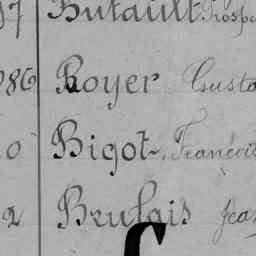 97 Hutault Prospe
986 Royer Gusta
0 Bigot, Francois
2 Brulais Jea